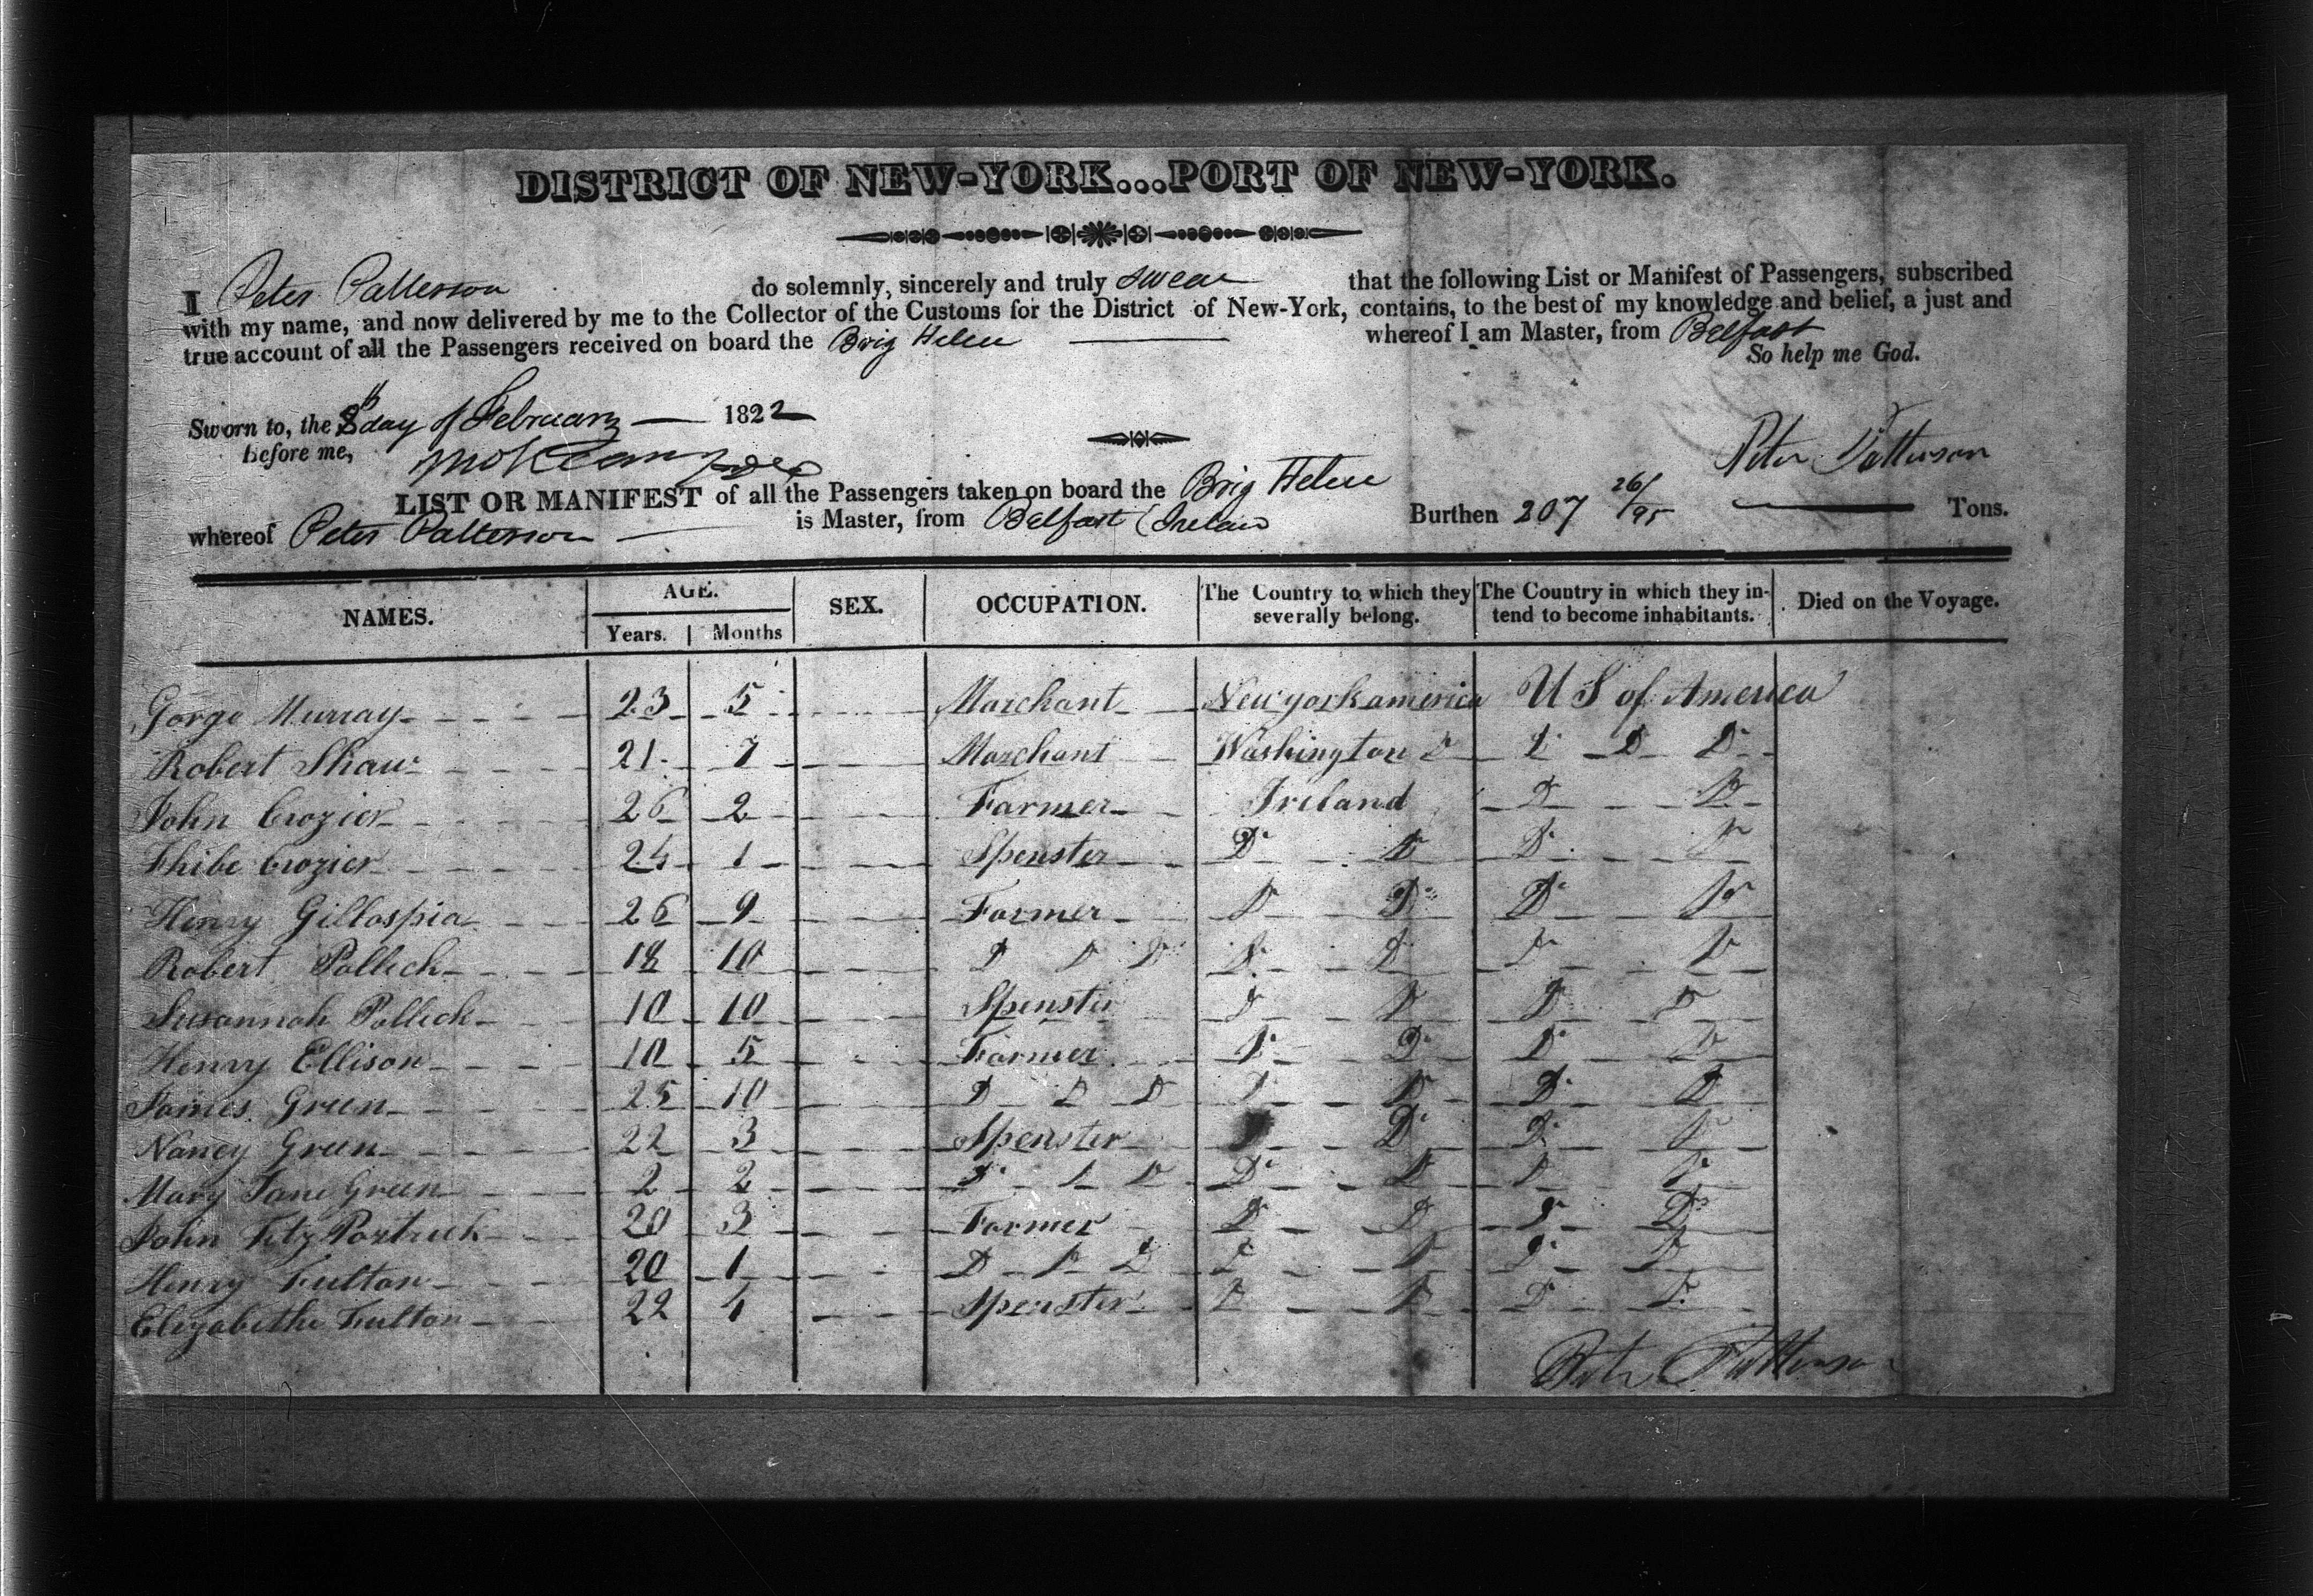 DISTRICT OF NEW-YORK...PORT OF NEW-YORK.
I Peter Patterson do solemnly, sincerely and truly swear that the following List or Manifest of Passengers, subscribed
with my name, and now delivered by me to the Collector of the Customs for the District of New-York, contains, to the best of my knowledge and belief, a just and
true account of all the Passengers received on board the Brig Helen whereof I am Master, from Belfast
So help me God.
Sworn to, the 8th day of February 1822
before me,
Peter Patterson
LIST OR MANIFEST of all the Passengers taken on board the Brig Helen
whereof Peter Patterson is Master, from Belfast (Ireland Burthen 207 26/95 Tons.
NAMES. AGE. SEX. OCCUPATION. The Country to which they severally belong. The Country in which they intend to become inhabitants. Died on the Voyage.
Years. Months
Gorge Murray 23 5 Marchant New york america U S of America
Robert Shaw 21 7 Marchant Washington Do Do Do Do
John Crozier 26 2 Farmer Ireland Do Do
Phibe Crozier 24 1 Spenster Do Do Do Do
Henry Gillospia 26 9 Farmer Do Do Do Do
Robert Pollick 18 10 Do Do Do Do Do Do Do
Susannah Pollick 10 10 Spenster Do Do Do Do
Henry Ellison 10 5 Farmer Do Do Do Do
James Green 25 10 Do Do Do Do Do Do Do
Nancy Green 22 3 Spenster Do Do Do
Mary Jane Green 2 2 Do Do Do Do Do Do Do
John Fitz Partrick 20 3 Farmer Do Do Do Do
Henry Fulton 20 1 Do Do Do Do Do Do Do
Elizabethe Fulton 22 1 Spenster Do Do Do Do
Peter Patterson